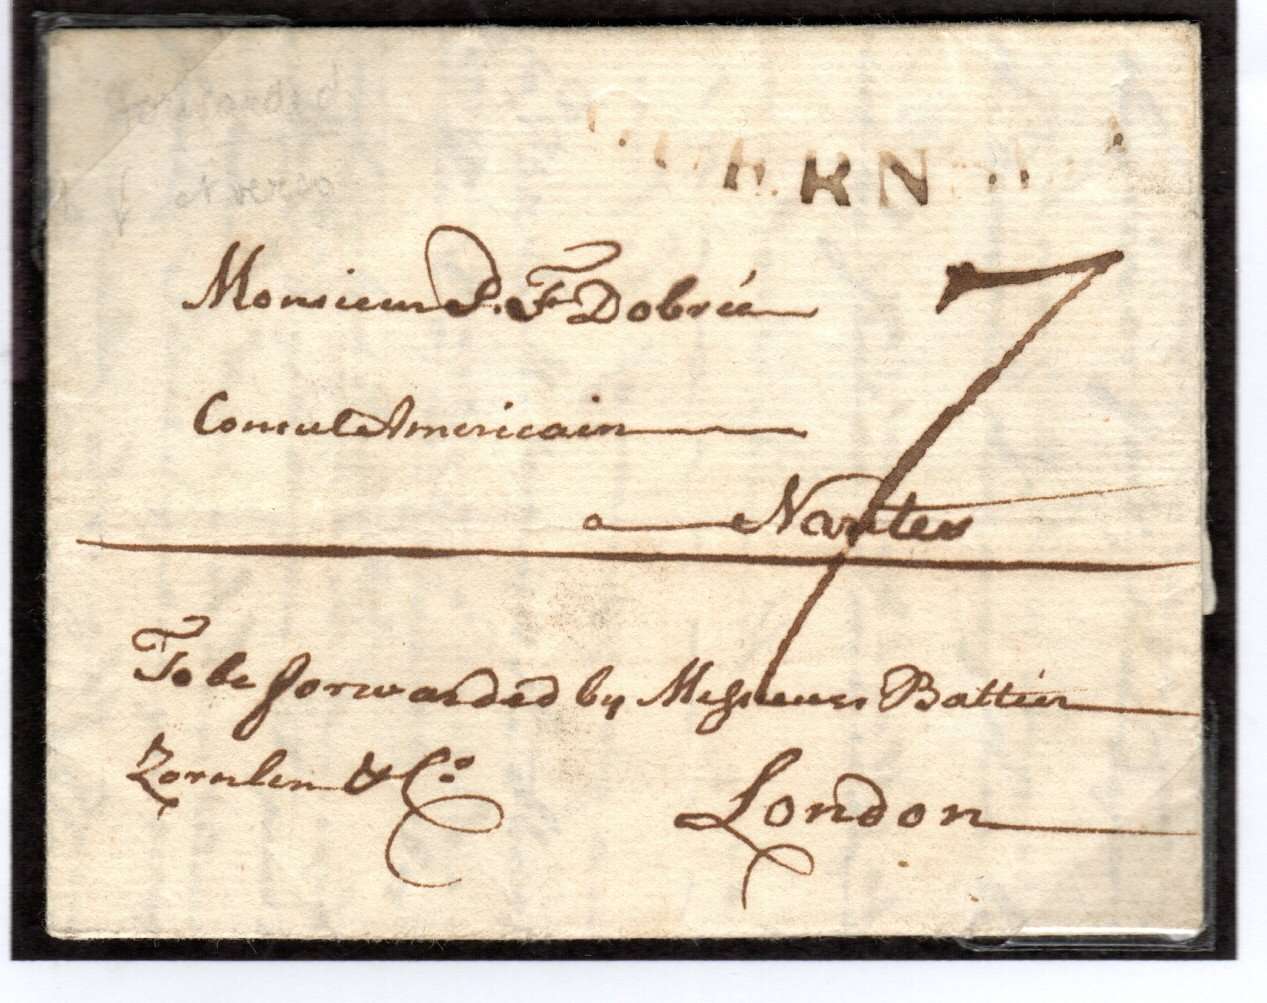 ERN
7
Monsieur P. F Dobrée
Consul Americain
a Nantes
To be forwarded by Messieurs Battier
Zornlin & Co
London